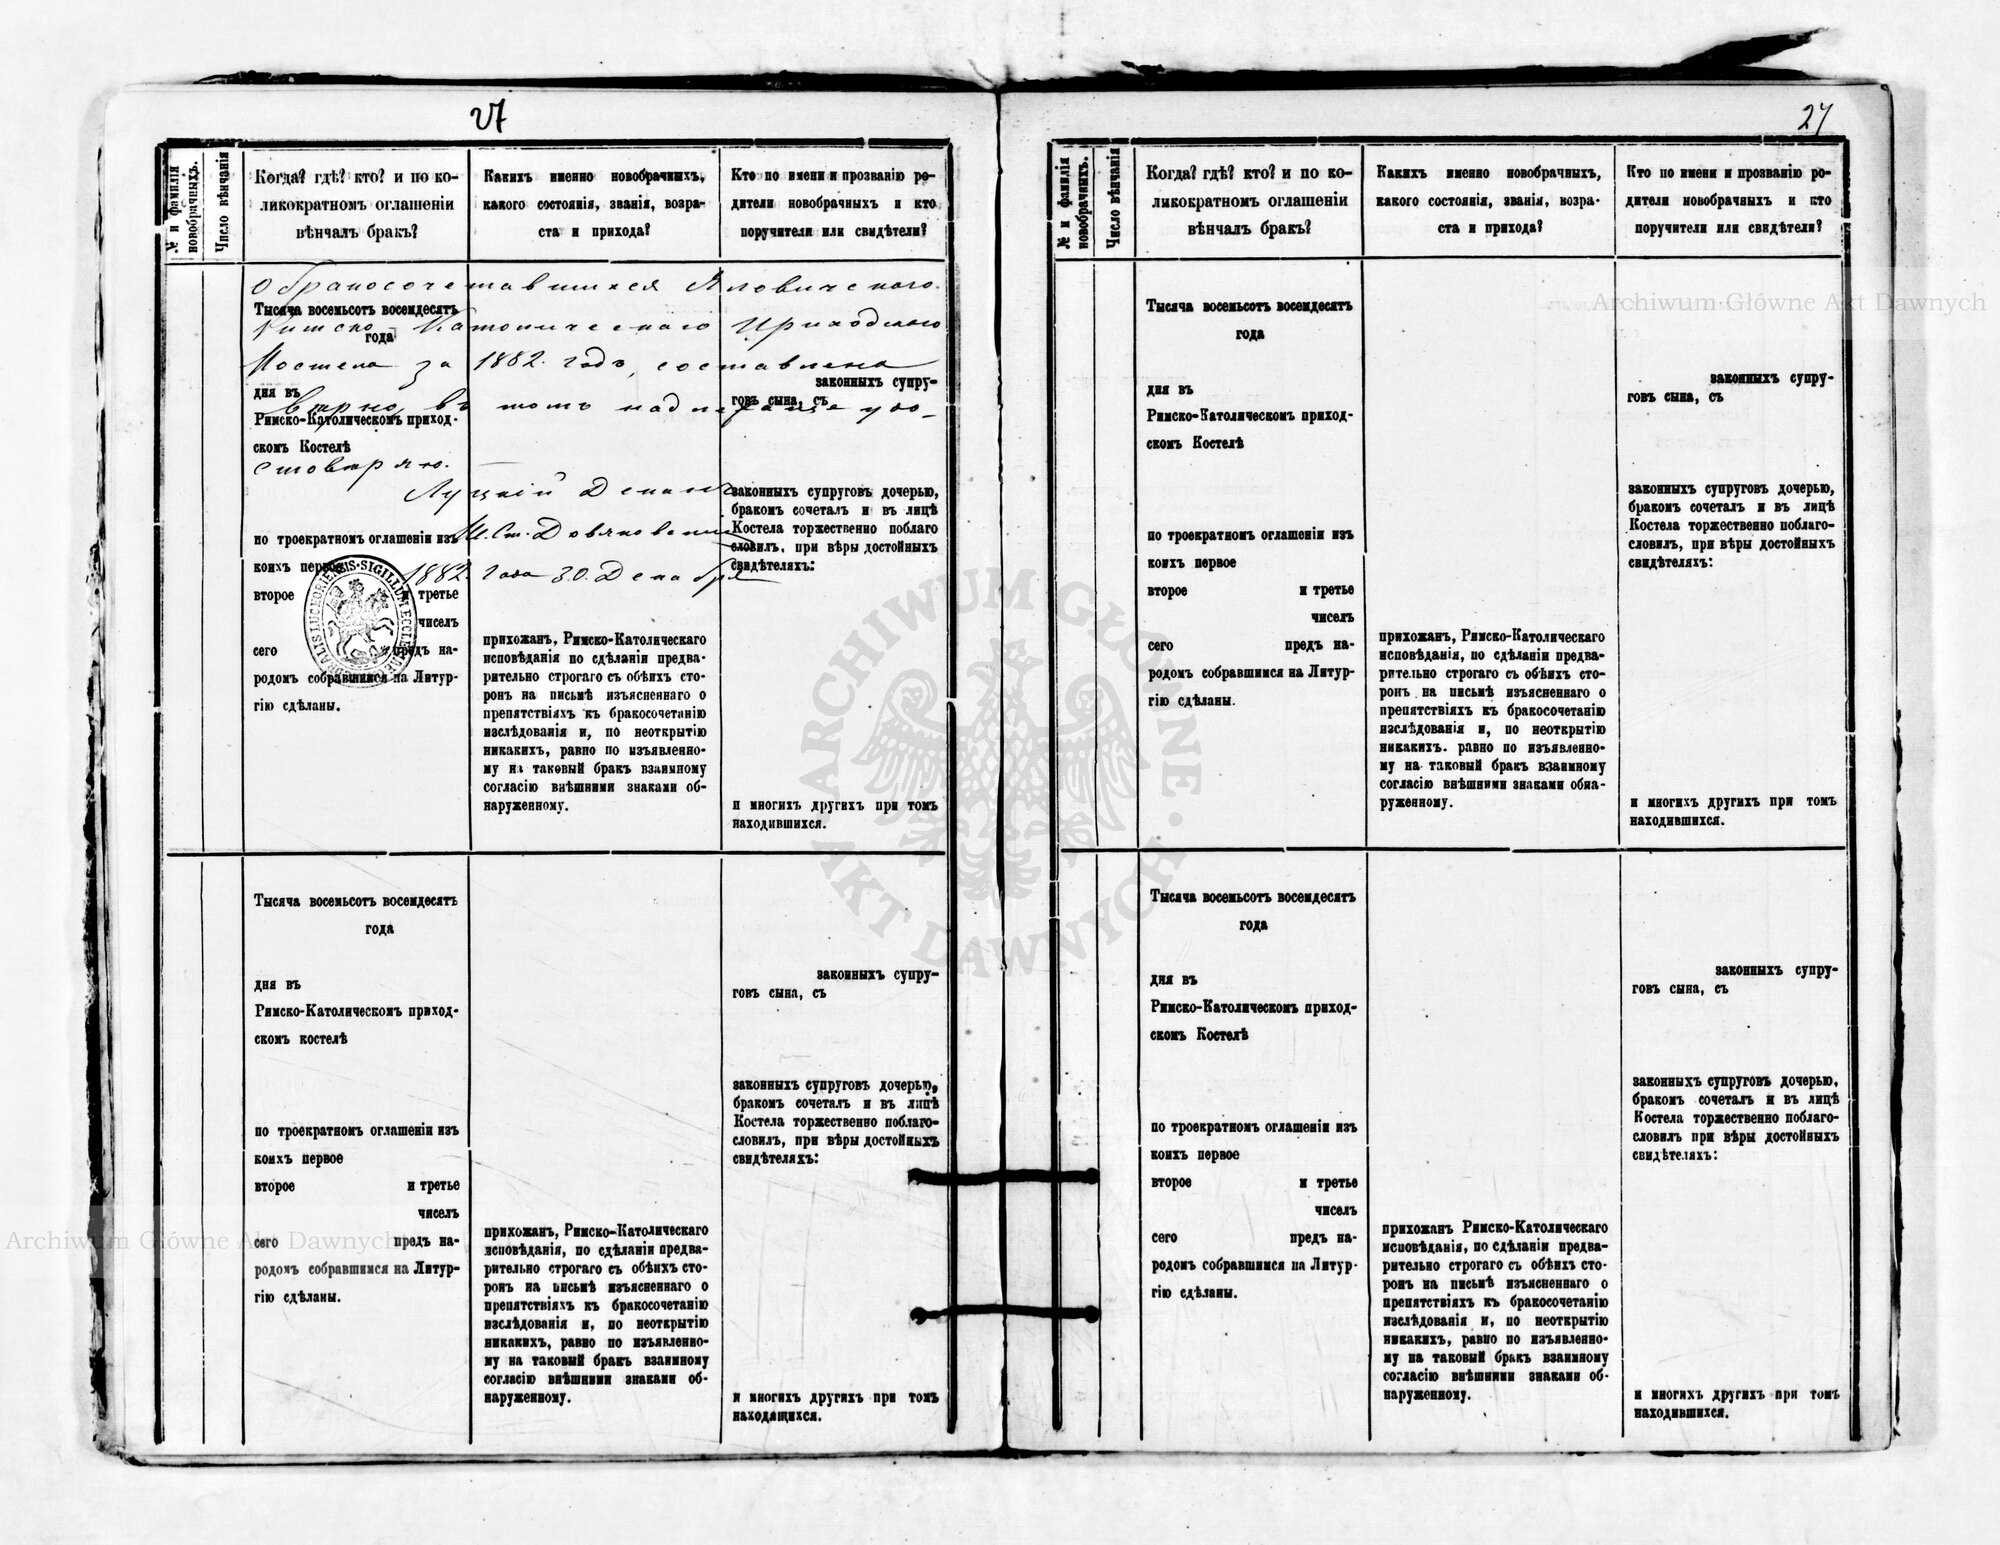 27
№ и фамилія новобрачныхъ.
Число вѣнчанія
Когда? гдѣ? кто? и по ко-
ликократномъ оглашеніи
вѣнчалъ бракъ?
Какихъ именно новобрачныхъ,
какого состоянія, званія, возра-
ста и прихода?
Кто по имени и прозванію ро-
дители новобрачныхъ и кто
поручители или свидѣтели?
о бракосочетавшихся Яловичскаго
Римско-Католическаго Приходскаго
Костела за 1882. годъ, составлена
вѣрно, въ томъ надписаніе удо-
стовѣряю.
Луцкій Деканъ
1882. года 30. Декабря
Тысяча восемьсотъ восемдесятъ
года
дня въ
Римско-Католическомъ приход-
скомъ Костелѣ
по троекратномъ оглашеніи изъ
коихъ первое
второе и третье
чиселъ
сего предъ на-
родомъ собравшимся на Литур-
гію сдѣланы.
прихожанъ, Римско-Католическаго
исповѣданія по сдѣланіи предва-
рительно строгаго съ обѣихъ сто-
ронъ на письмѣ изъясненнаго о
препятствіяхъ къ бракосочетанію
изслѣдованія и, по неоткрытію
никакихъ, равно по изъявленно-
му на таковый бракъ взаимному
согласію внѣшними знаками об-
наруженному.
законныхъ супру-
говъ сына, съ
законныхъ супруговъ дочерью,
бракомъ сочеталъ и въ лицѣ
Костела торжественно поблаго
словилъ, при вѣры достойныхъ
свидѣтеляхъ:
и многихъ другихъ при томъ
находившихся.
SIGILLUM ECCLESIAE
Тысяча восемьсотъ восемдесятъ
года
дня въ
Римско-Католическомъ приход-
скомъ костелѣ
по троекратномъ оглашеніи изъ
коихъ первое
второе и третье
чиселъ
сего предъ на-
родомъ собравшимся на Литур-
гію сдѣланы.
прихожанъ, Римско-Католическаго
исповѣданія, по сдѣланіи предва-
рительно строгаго съ обѣихъ сто-
ронъ на письмѣ изъясненнаго о
препятствіяхъ къ бракосочетанію
изслѣдованія и, по неоткрытію
никакихъ, равно по изъявленно-
му на таковый бракъ взаимному
согласію внѣшними знаками об-
наруженному.
законныхъ супру-
говъ сына, съ
законныхъ супруговъ дочерью,
бракомъ сочеталъ и въ лицѣ
Костела торжественно поблаго-
словилъ, при вѣры достойныхъ
свидѣтеляхъ:
и многихъ другихъ при томъ
находящихся.
27
№ и фамилія новобрачныхъ.
Число вѣнчанія
Когда? гдѣ? кто? и по ко-
ликократномъ оглашеніи
вѣнчалъ бракъ?
Какихъ именно новобрачныхъ,
какого состоянія, званія, возра-
ста и прихода?
Кто по имени и прозванію ро-
дители новобрачныхъ и кто
поручители или свидѣтели?
Тысяча восемьсотъ восемдесятъ
года
дня въ
Римско-Католическомъ приход-
скомъ Костелѣ
по троекратномъ оглашеніи изъ
коихъ первое
второе и третье
чиселъ
сего предъ на-
родомъ собравшимся на Литур-
гію сдѣланы.
прихожанъ, Римско-Католическаго
исповѣданія, по сдѣланіи предва-
рительно строгаго съ обѣихъ сто-
ронъ на письмѣ изъясненнаго о
препятствіяхъ къ бракосочетанію
изслѣдованія и, по неоткрытію
никакихъ. равно по изъявленно-
му на таковый бракъ взаимному
согласію внѣшними знаками обна-
руженному.
законныхъ супру-
говъ сына, съ
законныхъ супруговъ дочерью,
бракомъ сочеталъ и въ лицѣ
Костела торжественно поблаго-
словилъ, при вѣры достойныхъ
свидѣтеляхъ:
и многихъ другихъ при томъ
находившихся.
Тысяча восемьсотъ восемдесятъ
года
дня въ
Римско-Католическомъ приход-
скомъ Костелѣ
по троекратномъ оглашеніи изъ
коихъ первое
второе и третье
чиселъ
сего предъ на-
родомъ собравшимся на Литур-
гію сдѣланы.
прихожанъ Римско-Католическаго
исповѣданія, по сдѣланіи предва-
рительно строгаго съ обѣихъ сто-
ронъ на письмѣ изъясненнаго о
препятствіяхъ къ бракосочетанію
изслѣдованія и, по неоткрытію
никакихъ, равно по изъявленно-
му на таковый бракъ взаимному
согласію внѣшними знаками об-
наруженному.
законныхъ супру-
говъ сына, съ
законныхъ супруговъ дочерью,
бракомъ сочеталъ и въ лицѣ
Костела торжественно поблаго-
словилъ при вѣры достойныхъ
свидѣтеляхъ:
и многихъ другихъ при томъ
находившихся.
Archiwum Główne Akt Dawnych
ARCHIWUM GŁÓWNE · AKT DAWNYCH ·
Archiwum Główne Akt Dawnych